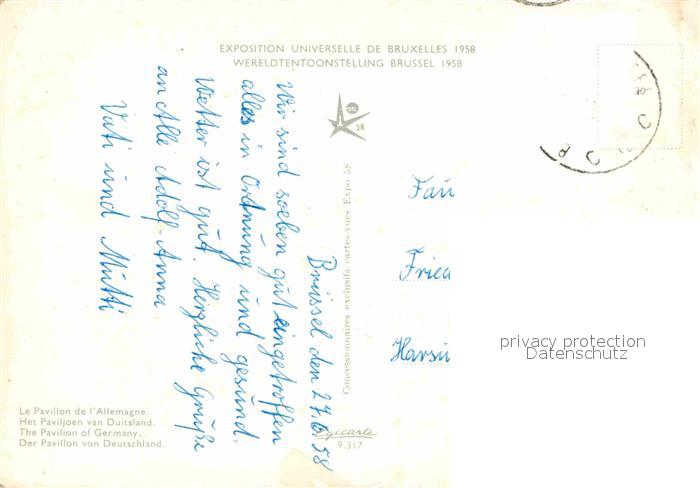 EXPOSITION UNIVERSELLE DE BRUXELLES 1958
WERELDTENTOONSTELLING BRUSSEL 1958
58
Brüssel den 27.6.58
Wir sind soeben gut eingetroffen
alles in Ordnung und gesund.
Wetter ist gut. Herzliche Grüße
an Alle Adolf-Anna.
Vati und Mutti
Concessionnaires exclusifs cartes-vues Expo 58
Fried
privacy protection
Datenschutz
Le Pavillon de l'Allemagne.
Het Paviljoen van Duitsland.
The Pavilion of Germany.
Der Pavillon von Deutschland.
9.317